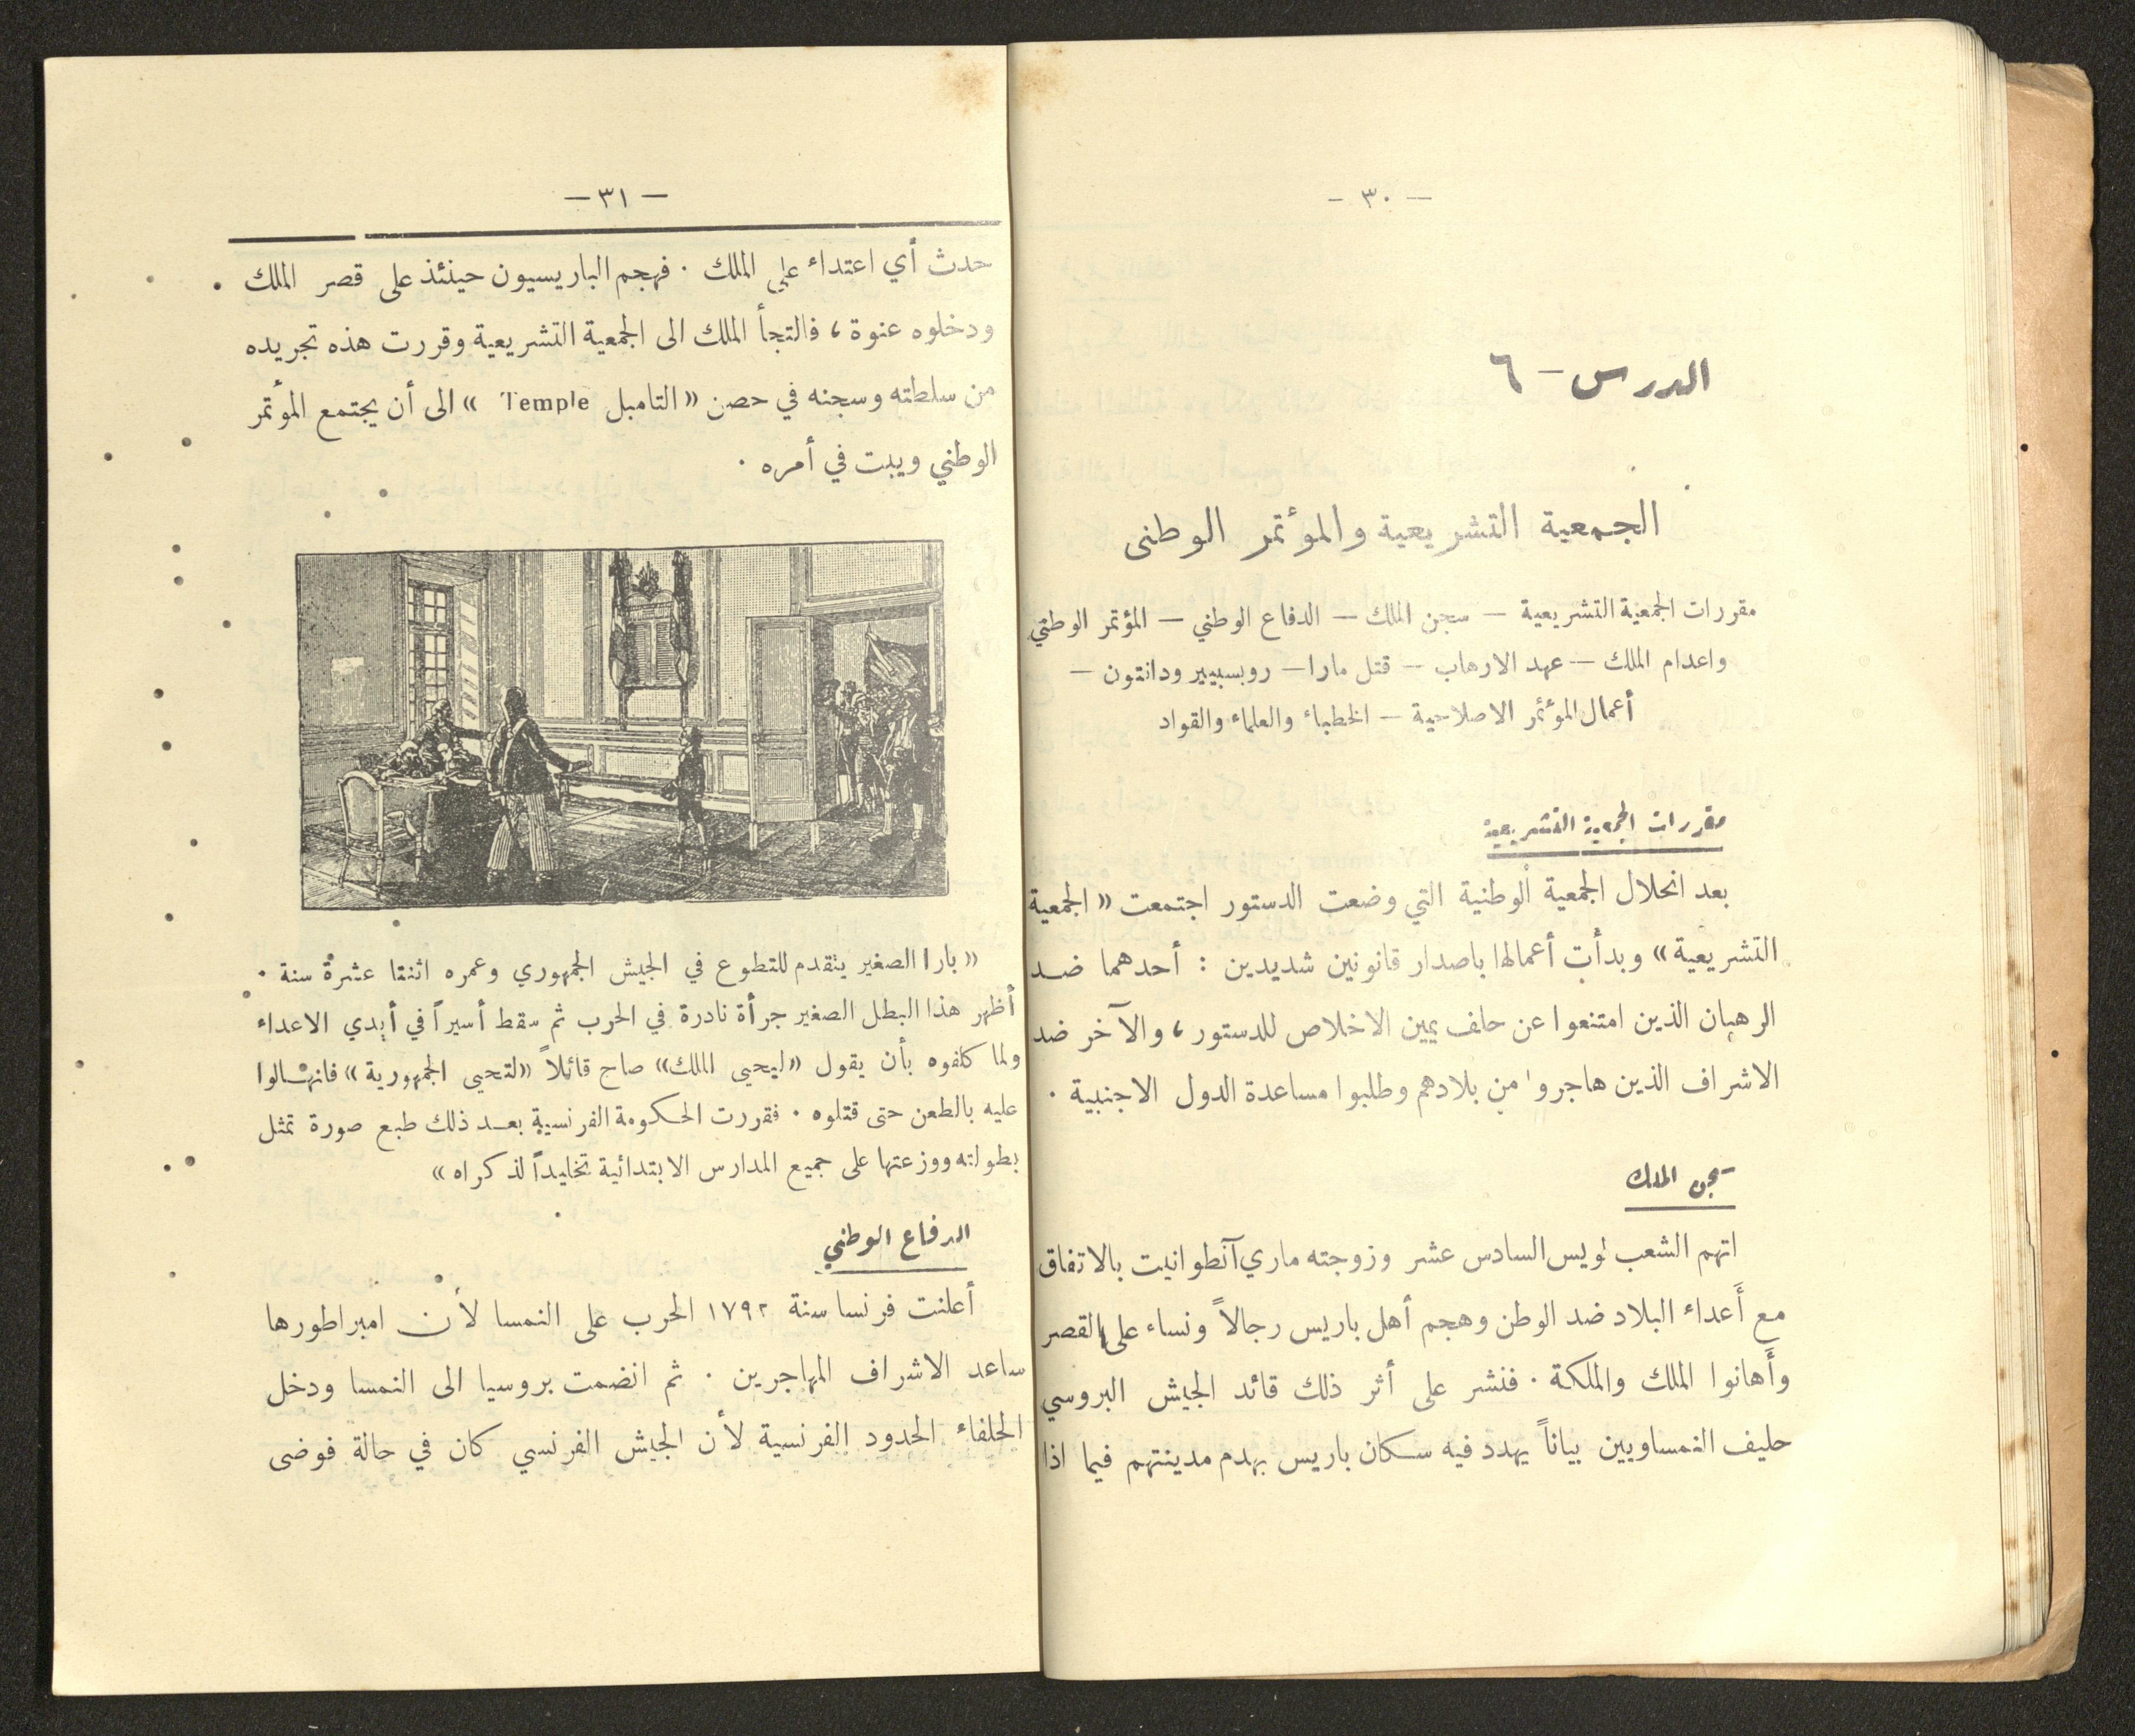 — ٣٠ —
الدرس — ٦
الجمعية التشريعية والمؤتمر الوطني
مقررات الجمعية التشريعية — سجن الملك — الدفاع الوطني — المؤتمر الوطني
واعدام الملك — عهد الارهاب — قتل مارا — روبسبيير ودانتون —
أعمال المؤتمر الاصلاحية — الخطباء والعلماء والقواد
مقررات الجمعية التشريعية
بعد انحلال الجمعية الوطنية التي وضعت الدستور اجتمعت «الجمعية
التشريعية» وبدأت أعمالها باصدار قانونين شديدين : أحدهما ضد
الرهبان الذين امتنعوا عن حلف يمين الاخلاص للدستور، والآخر ضد
الاشراف الذين هاجروا من بلادهم وطلبوا مساعدة الدول الاجنبية .
سجن الملك
اتهم الشعب لويس السادس عشر وزوجته ماري آنطوانيت بالاتفاق
مع أعداء البلاد ضد الوطن وهجم أهل باريس رجالاً ونساء على القصر
وأهانوا الملك والملكة . فنشر على أثر ذلك قائد الجيش البروسي
حليف النمساويين بياناً يهدد فيه سكان باريس بهدم مدينتهم فيما اذا
— ٣١ —
حدث أي اعتداء على الملك . فهجم الباريسيون حينئذ على قصر الملك
ودخلوه عنوة، فالتجأ الملك الى الجمعية التشريعية وقررت هذه تجريده
من سلطته وسجنه في حصن «التامبل Temple» الى أن يجتمع المؤتمر
الوطني ويبت في أمره .
«بارا الصغير يتقدم للتطوع في الجيش الجمهوري وعمره اثنتا عشرة سنة .
أظهر هذا البطل الصغير جرأة نادرة في الحرب ثم سقط أسيراً في أيدي الاعداء
ولما كلفوه بأن يقول «ليحيى الملك» صاح قائلاً «لتحيى الجمهورية» فانهالوا
عليه بالطعن حتى قتلوه . فقررت الحكومة الفرنسية بعد ذلك طبع صورة تمثل
بطولته ووزعتها على جميع المدارس الابتدائية تخليداً لذكراه»
الدفاع الوطني
أعلنت فرنسا سنة ١٧٩٢ الحرب على النمسا لأن امبراطورها
ساعد الاشراف المهاجرين . ثم انضمت بروسيا الى النمسا ودخل
الحلفاء الحدود الفرنسية لأن الجيش الفرنسي كان في حالة فوضى